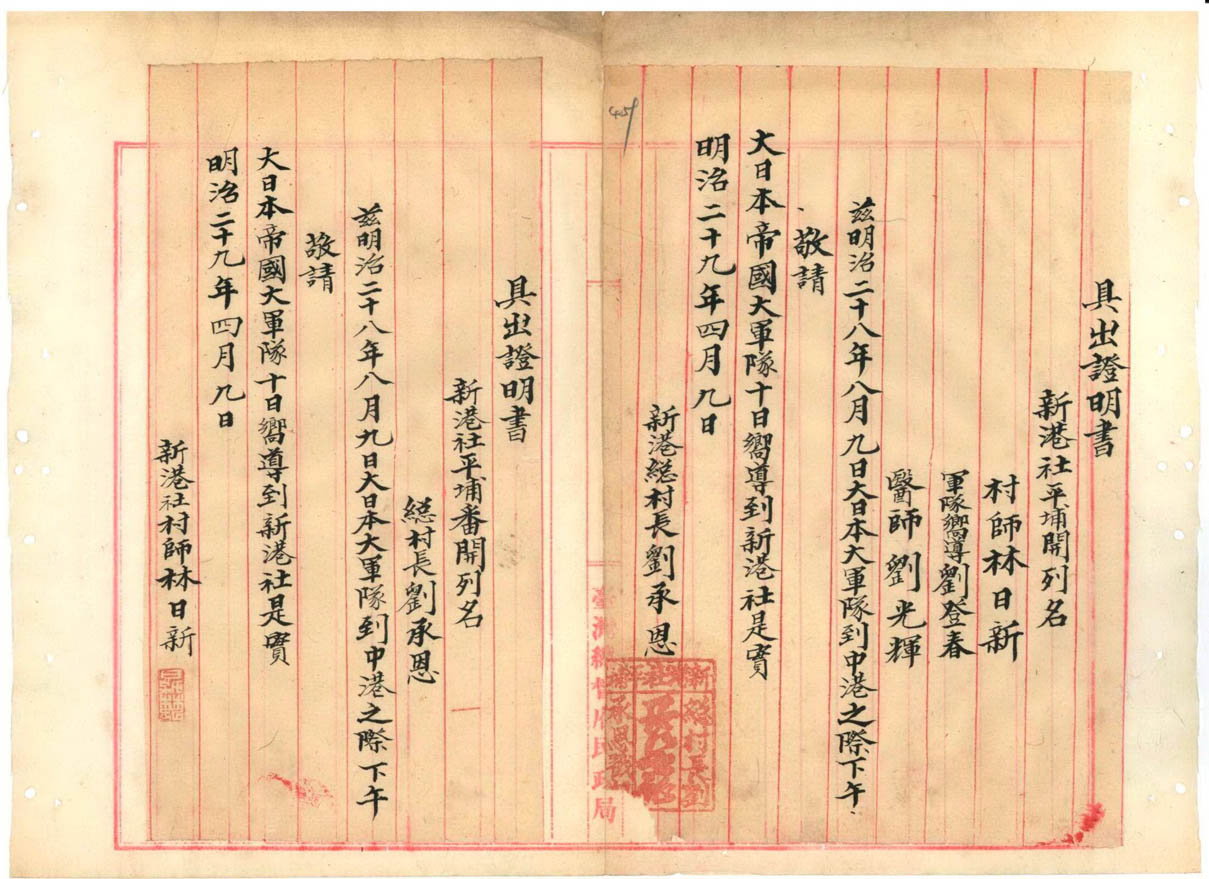 具出證明書
新港社平埔開列名
村師林日新
軍隊嚮導劉登春
醫師劉光輝
兹明治二十八年八月九日大日本大軍隊到中港之際下午
敬請
大日本帝國大軍隊十日嚮導到新港社是實
明治二十九年四月九日
新港總村長劉承恩
具出證明書
新港社平埔番開列名
總村長劉承恩
兹明治二十八年八月九日大日本大軍隊到中港之際下午
敬請
大日本帝國大軍隊十日嚮導到新港社是實
明治二十九年四月九日
新港社村師林日新
臺灣總督府民政局
總村長劉
承恩